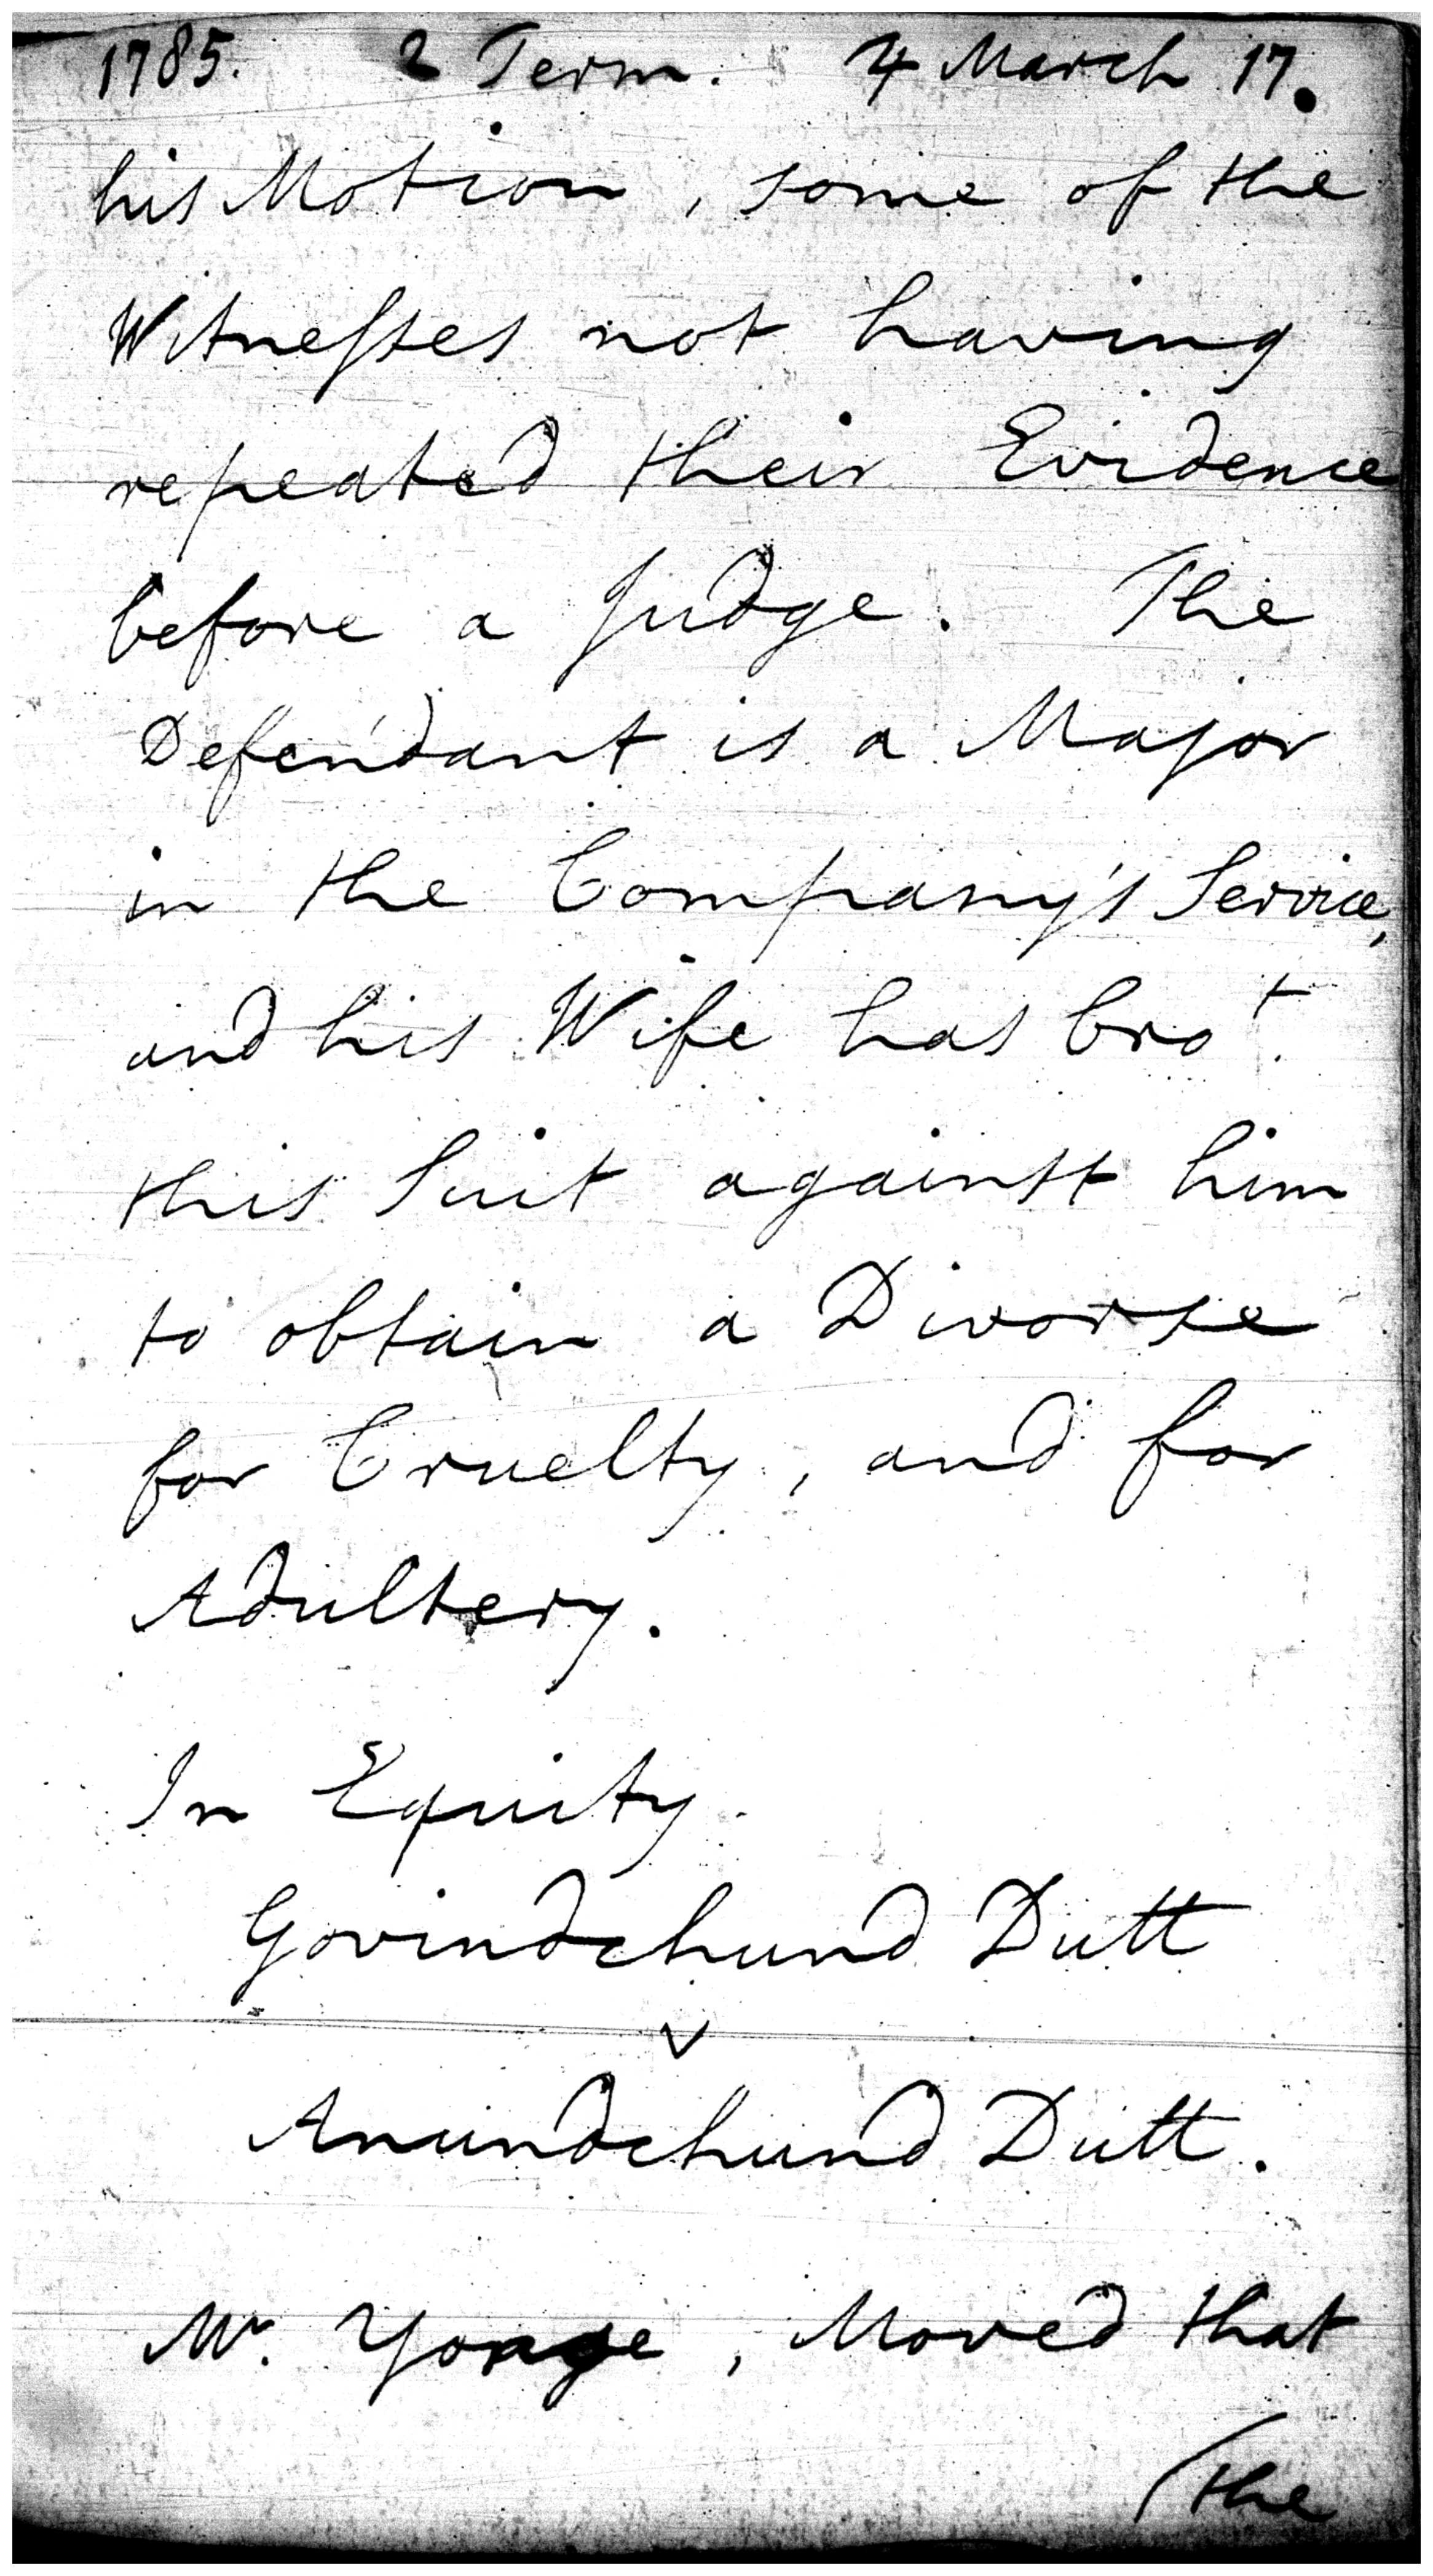 1785. 2 Term. 4 March 17.
his Motion, some of the
Witnesses not having
repeated their Evidence
before a Judge. The
Defendant is a Major
in the Company's Service,
and his Wife has bro.t
this Suit against him
to obtain a Divorse
for Cruelty, and for
Adultery.
In Equity.
Govindchund Dutt
v
Anundchund Dutt.
Mr. Yonge, Moved that
the